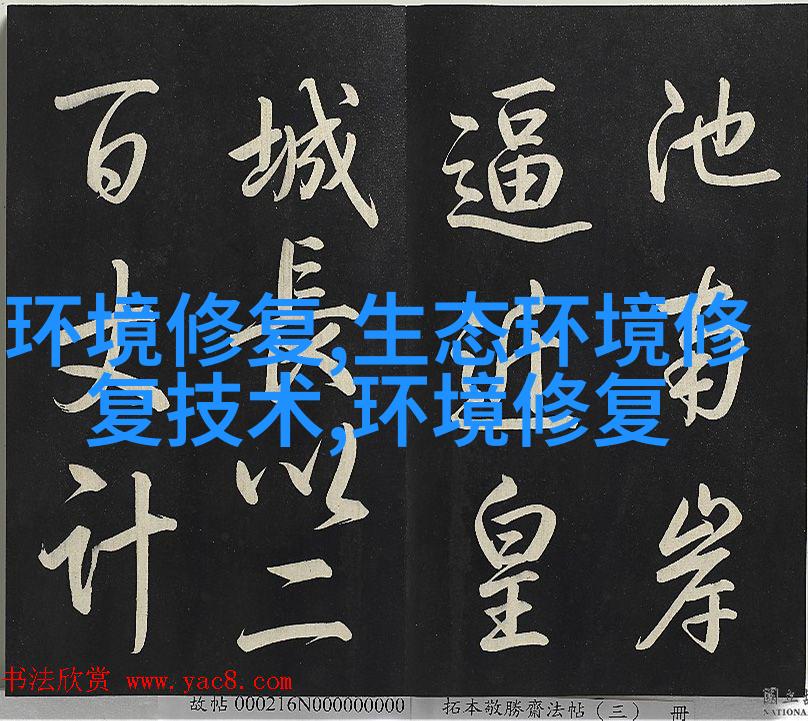 池南岸
逼近皇
城長以二
百丈計
环境修复,生态环境修
复技术,环境修复
书法欣赏 www.yac8.com
故帖 000216N000000000 拓本敬勝齋法帖（三） 冊
國立
NATIONA